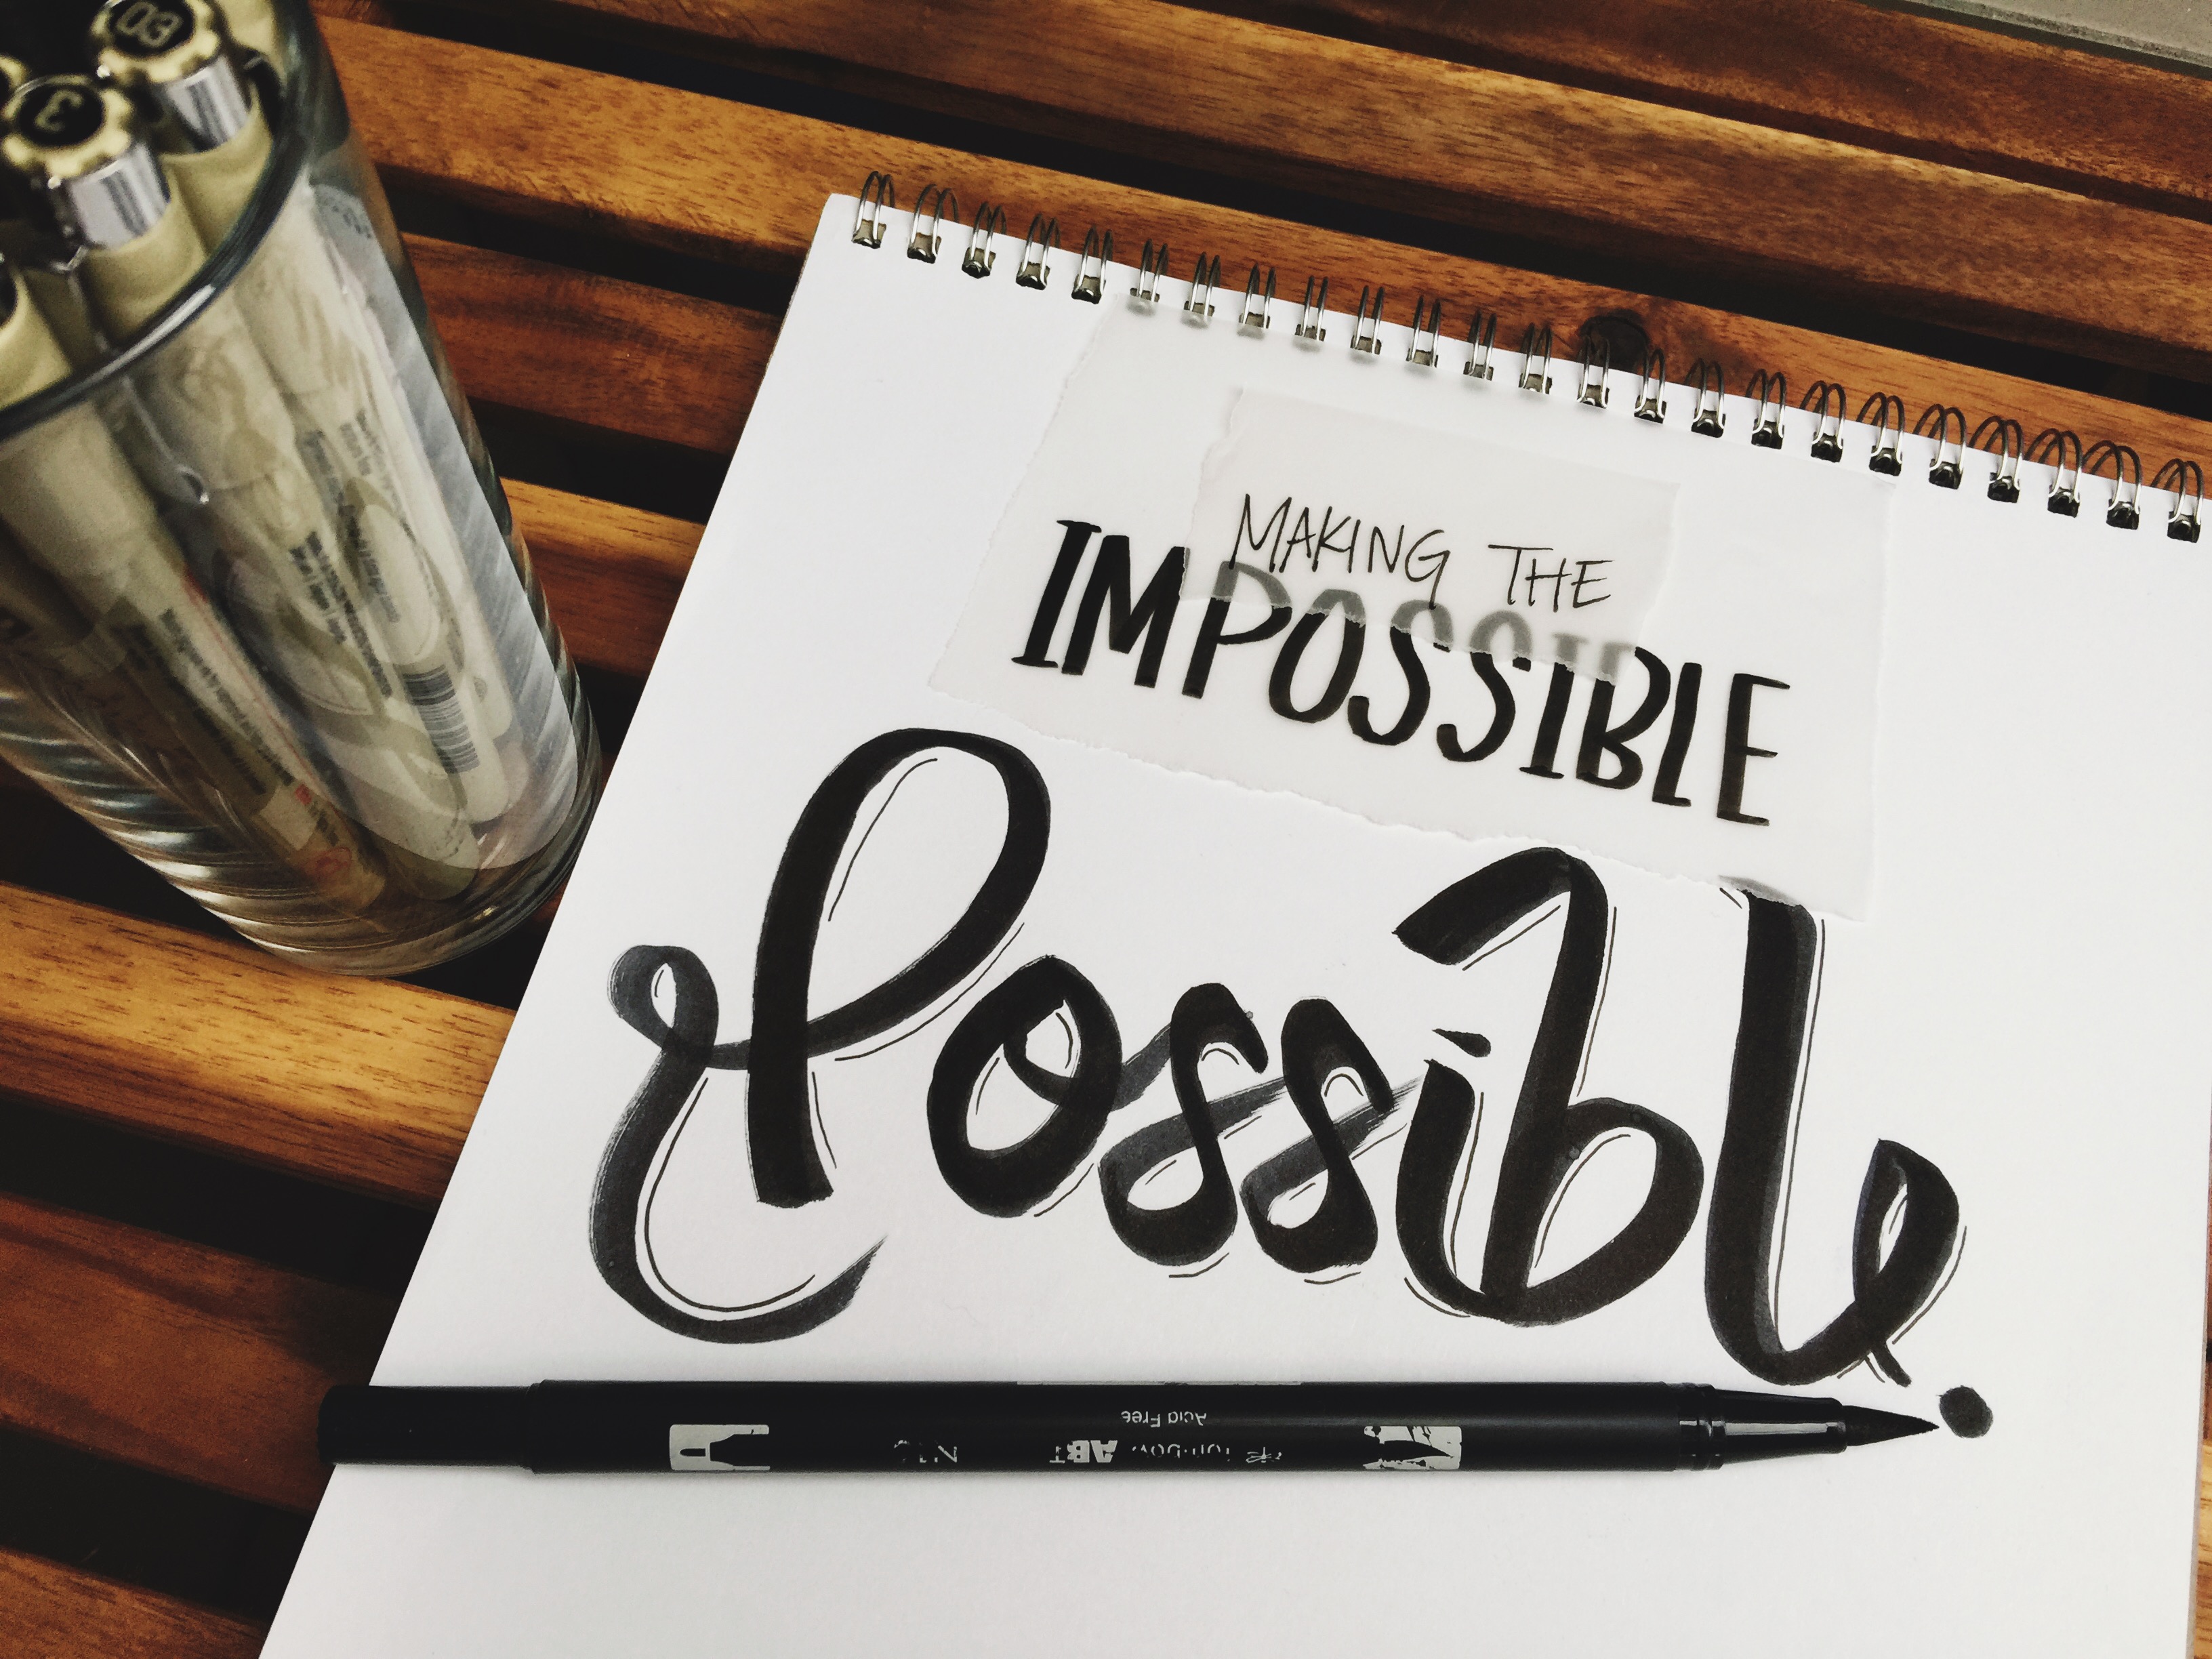 MAKING THE
IMPOSSIBLE
Possible.
Acid Free
Tombow ABT
N15
03
3